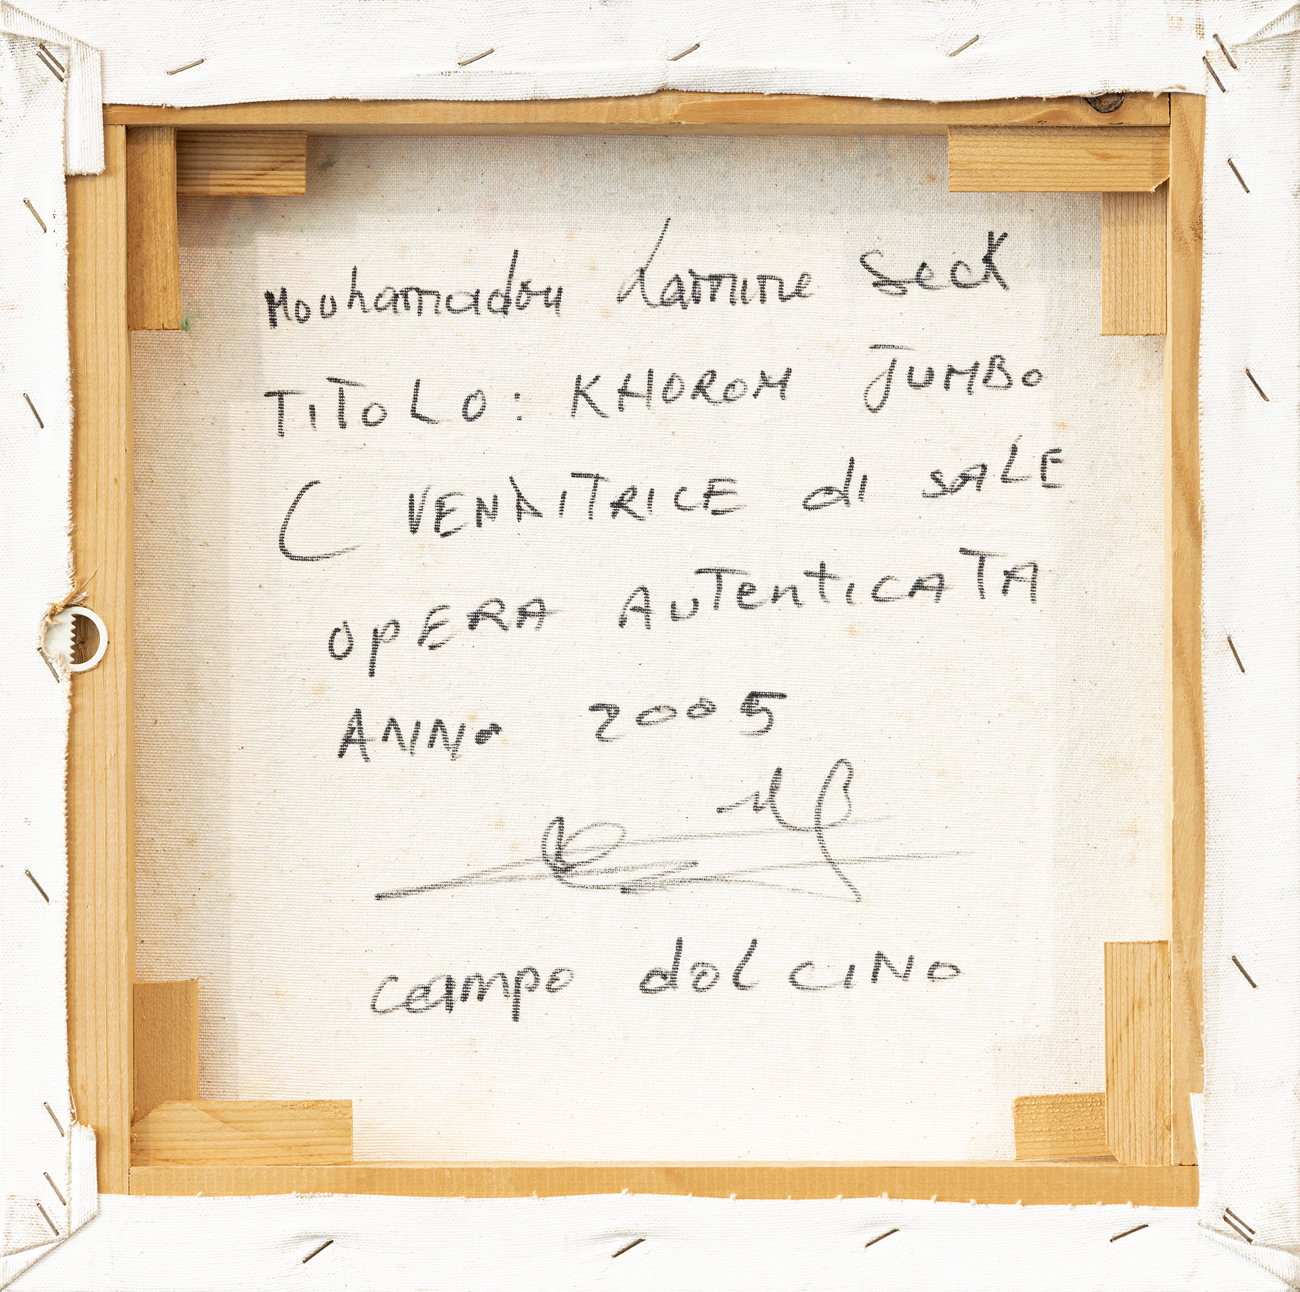 Mouhamadou Lamine Seck
TITOLO: KHOROM JUMBO
( VENDITRICE di SALE
OPERA AUTENTICATA
ANNO 2005
campo dolciNo